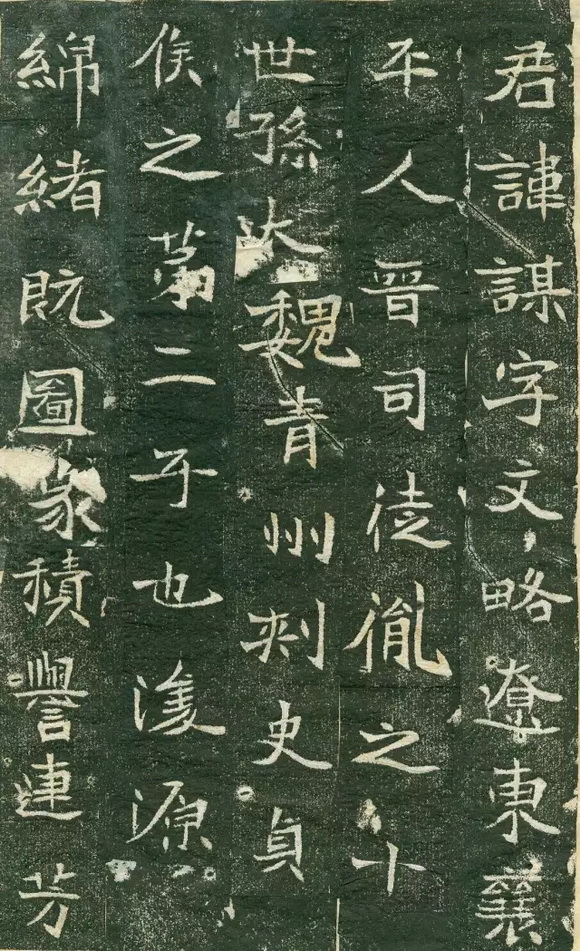 君諱謀字文略遼東襄
平人晉司徒胤之十
世孫大魏青州刺史貞
侯之第二子也濬源
綿緒既圖篆積譽連芳